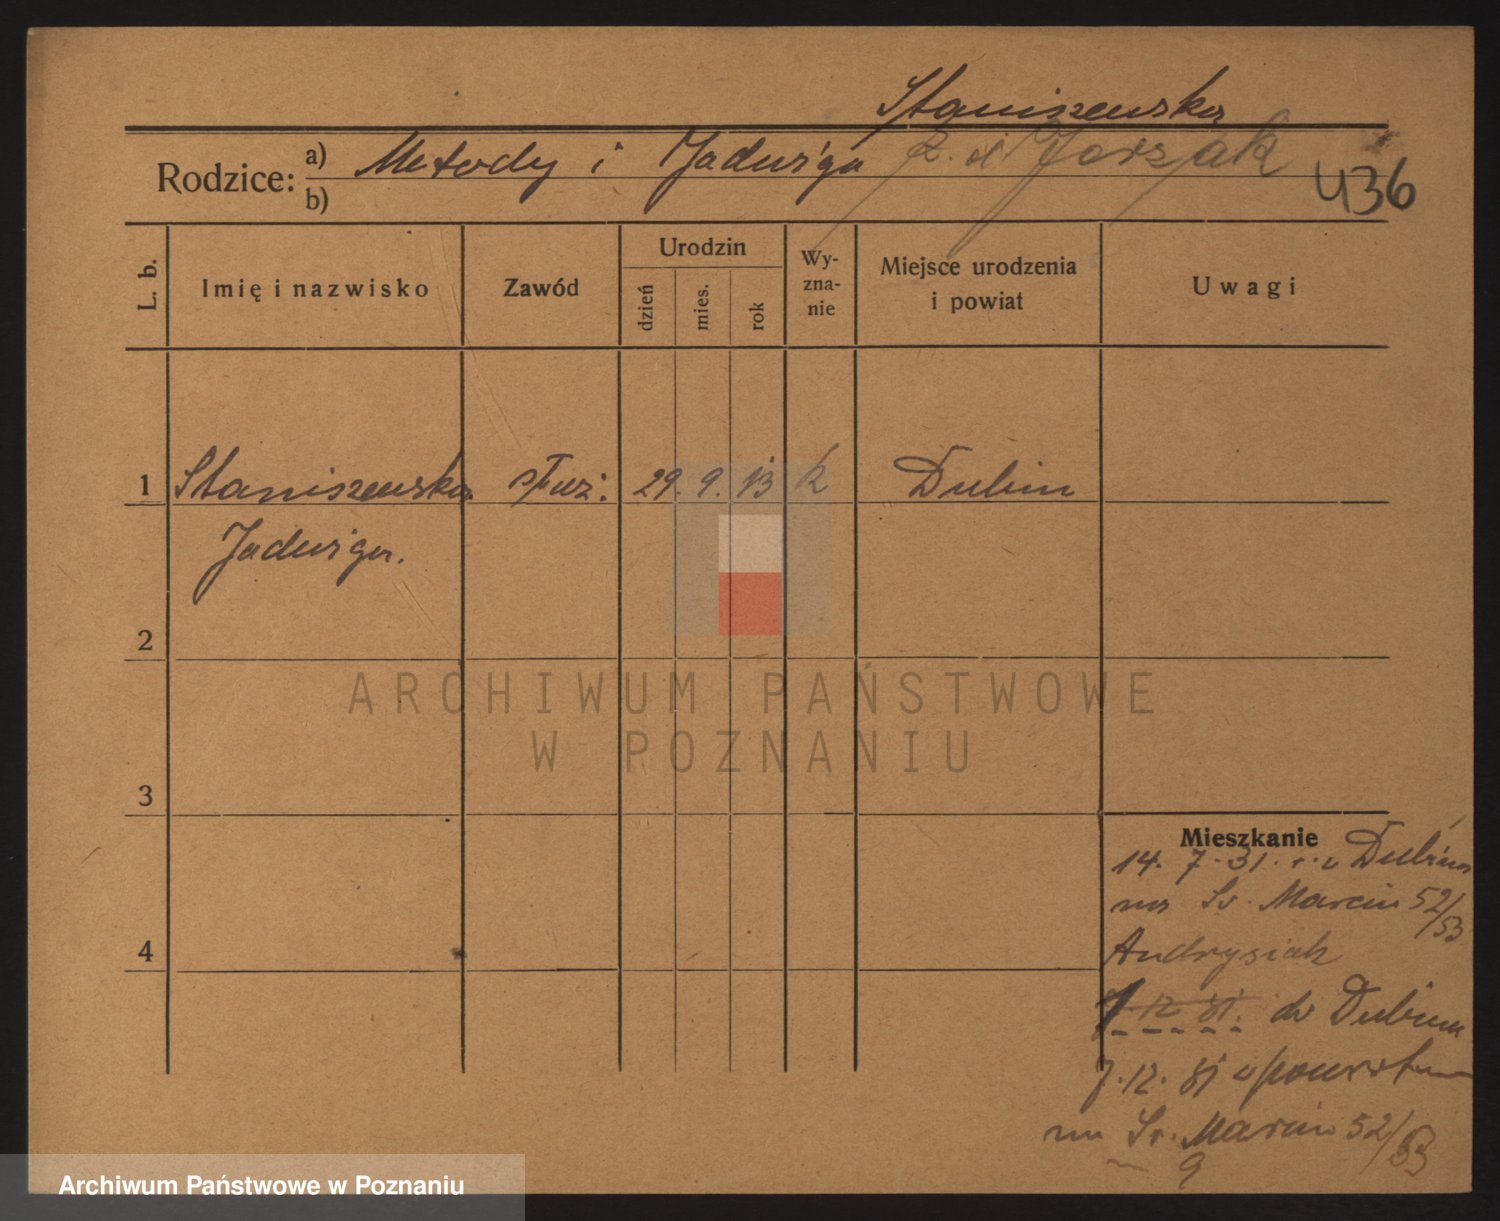 Staniszewska
Rodzice: a) Metody i Jadwiga z d. Jorszak
b)
436
L. b.
Imię i nazwisko
Zawód
Urodzin
dzień
mies.
rok
Wy-
zna-
nie
Miejsce urodzenia
i powiat
Uwagi
1 Staniszewska służ. 29. 9. 13 k Dubin
Jadwiga.
2
3
4
Mieszkanie
14. 7. 31. Dubina
na Św. Marcin 52/53
Andrysiak
7. 12 31. do Dubina
7. 12. 31
na Św. Marcin 52/53
9
ARCHIWUM PAŃSTWOWE
W POZNANIU
Archiwum Państwowe w Poznaniu